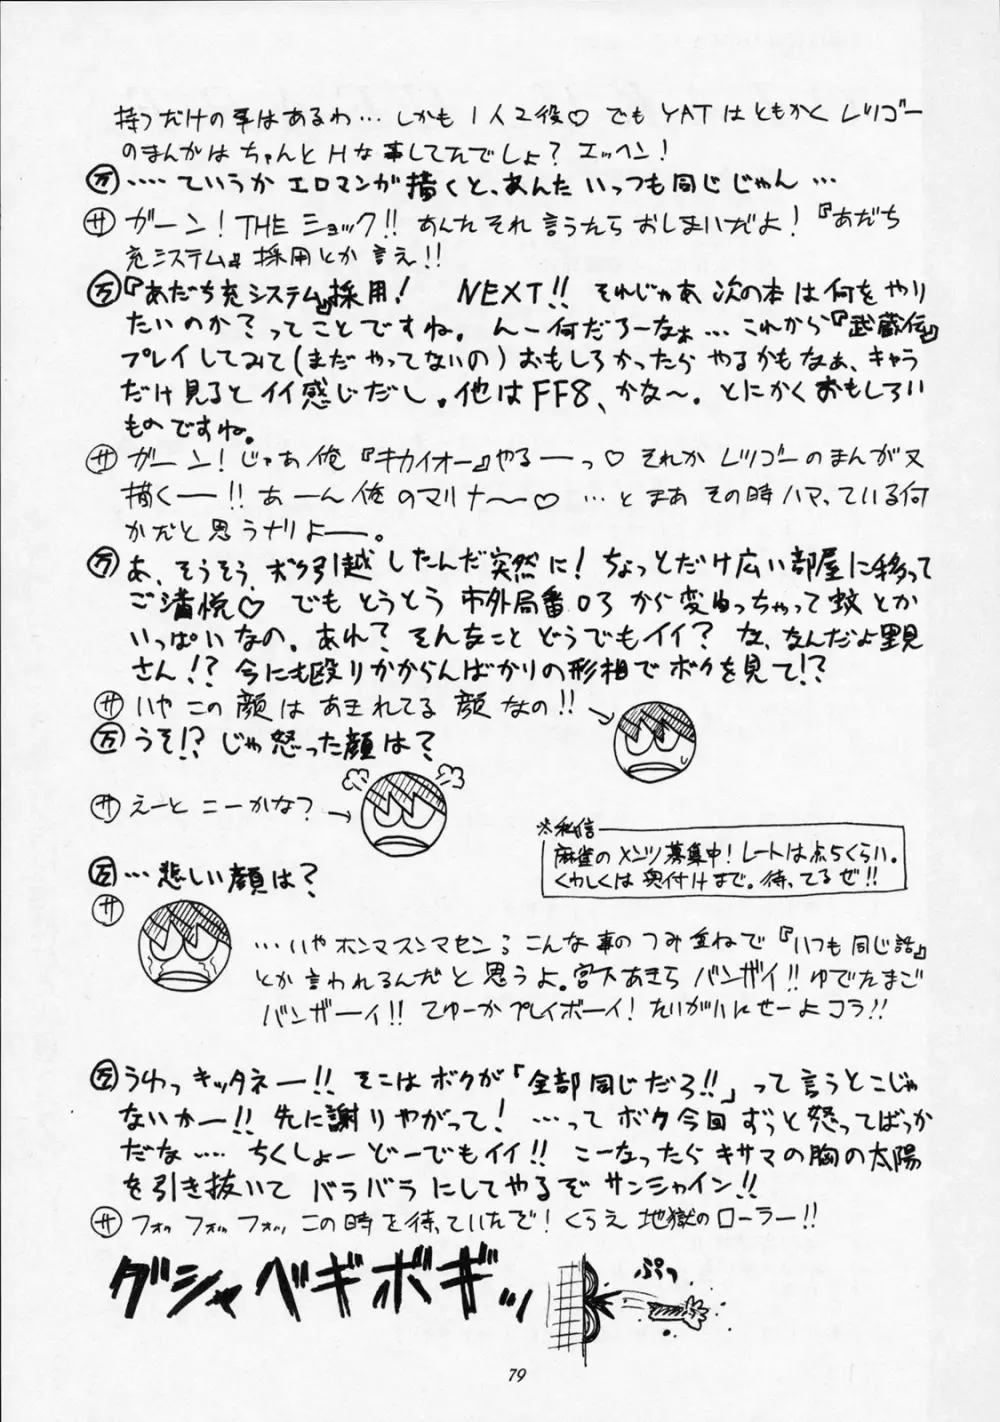 持つだけの事はあるわ…しかも1人2役♡でもYATはともかくレツゴー
のまんがはちゃんとHな事してたでしょ？エッヘン！
万……ていうかエロマンガ描くと、あんたいっつも同じじゃん…
サ ガーン！THEショック!!あんたそれ言うたらおしまいだよ！『あだち
充システム』採用とか言え!!
万『あだち充システム』採用！ NEXT!! それじゃあ次の本は何をやり
たいのか？ってことですね。んー何だろーなぁ…これから『武蔵伝』
プレイしてみて(まだやってないの)おもしろかったらやるかもなぁ、キャラ
だけ見るとイイ感じだし。他はFF8、かな〜。とにかくおもしろい
ものですね。
サ ガーン！じゃあ俺『キカイオー』やるーーっ♡それかレツゴーのまんが又
描くーー!!あーーん俺のマリナ〜〜♡…とまあその時ハマっている何
かだと思うナリよーー。
万 あ、そうそうボク引越したんだ突然に！ちょっとだけ広い部屋に移って
ご満悦♡でもとうとう市外局番03から変わっちゃって蚊とか
いっぱいなの。あれ？そんなことどうでもイイ？な、なんだよ里見
さん!?今にも殴りかからんばかりの形相でボクを見て!?
サ いやこの顔はあきれてる顔なの!!
万 うそ!?じゃ怒った顔は？
サ えーとこーかな？
※私信
麻雀のメンツ募集中！レートは点5くらい。
くわしくは奥付けまで。待ってるぜ!!
万…悲しい顔は？
サ
…いやホンマスンマセン。こんな事のつみ重ねで『いつも同じ話』
とか言われるんだと思うよ。宮下あきらバンザイ!!ゆでたまご
バンザーイ!!てゆーかプレイボーイ！たいがいにせーよコラ!!
万 うわっキッタネー!!そこはボクが「全部同じだろ!!」って言うとこじゃ
ないかー!!先に謝りやがって！…ってボク今回ずっと怒ってばっか
だな……ちくしょーどーでもイイ!!こーなったらキサマの胸の太陽
を引き抜いてバラバラにしてやるぞサンシャイン!!
サ フォッフォッフォッこの時を待っていたぞ！くらえ地獄のローラー!!
グシャベギボギッ
ぷっ
79